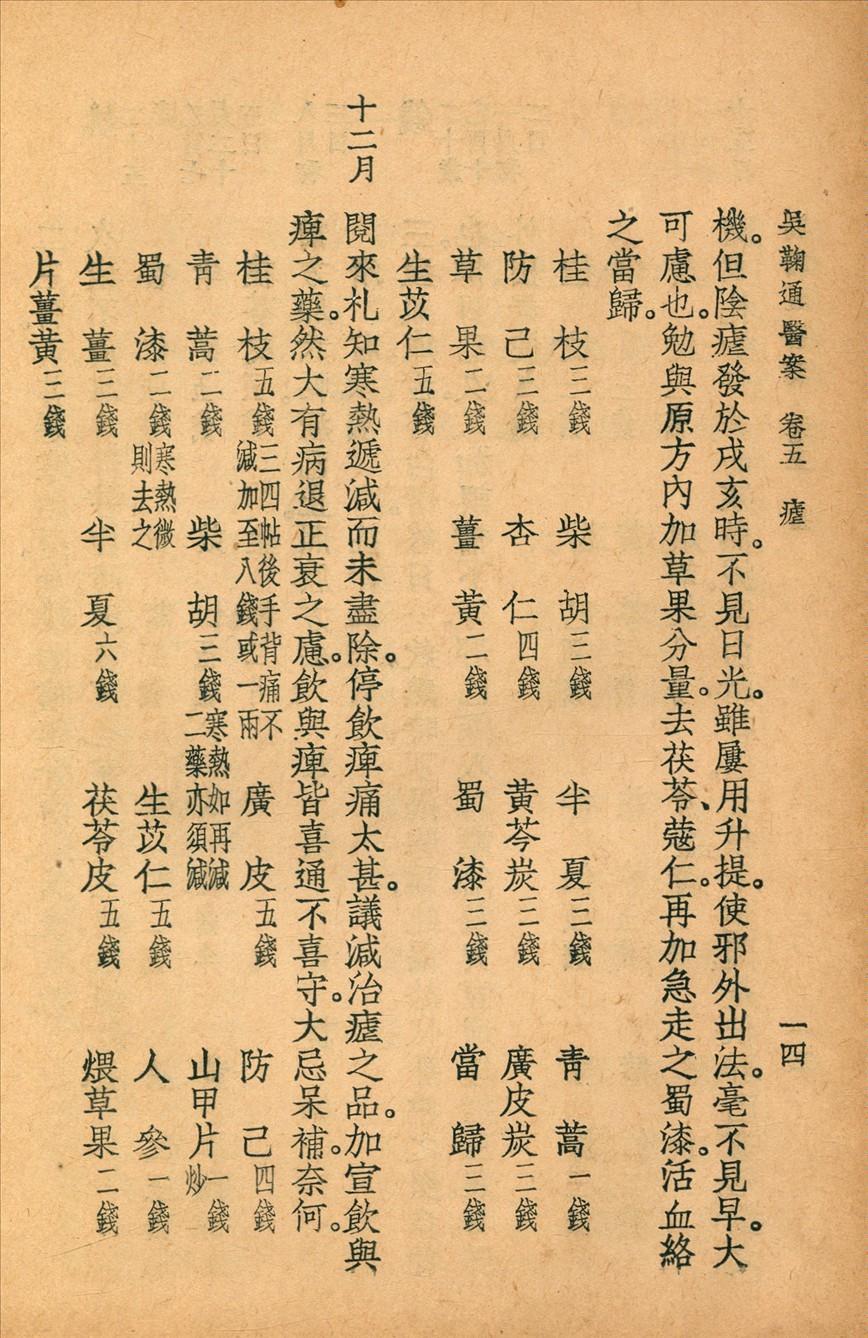 吳鞠通醫案　卷五　瘧　一四
機。但陰瘧發於戌亥時。不見日光。雖屢用升提。使邪外出法。毫不見早。大
可慮也。勉與原方內加草果分量。去茯苓、蔻仁。再加急走之蜀漆。活血絡
之當歸。
桂枝三錢　柴胡三錢　半夏三錢　青蒿一錢
防己三錢　杏仁四錢　黃芩炭三錢　廣皮炭三錢
草果二錢　薑黃二錢　蜀漆三錢　當歸三錢
生苡仁五錢
十二月　閱來札知寒熱遞減而未盡除。停飲痺痛太甚。議減治瘧之品。加宣飲與
痺之藥。然大有病退正衰之慮。飲與痺皆喜通不喜守。大忌呆補。奈何。
桂枝五錢三四帖後手背痛不減加至八錢或一兩　廣皮五錢　防己四錢
青蒿二錢　柴胡三錢寒熱如再減二藥亦須減　山甲片一錢炒
蜀漆二錢寒熱微則去之　生苡仁五錢　人參一錢
生薑三錢　半夏六錢　茯苓皮五錢　煨草果二錢
片薑黃三錢